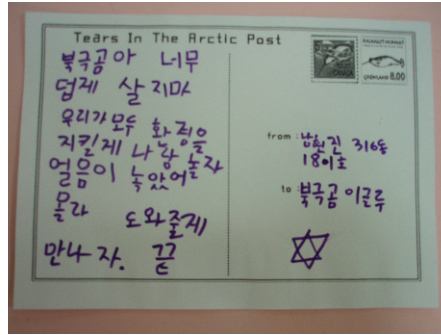 Tears In The Arctic Post
북극곰아 너무
덥게 살지마
우리가 모두 환경을
지킬게 나랑 놀자
얼음이 녹았어
몰라 도와줄게
만나자. 끝
KALAALLIT NUNAAT
GRØNLAND 8.00
from : 남현진 316동
1801호
to : 북극곰 이글루